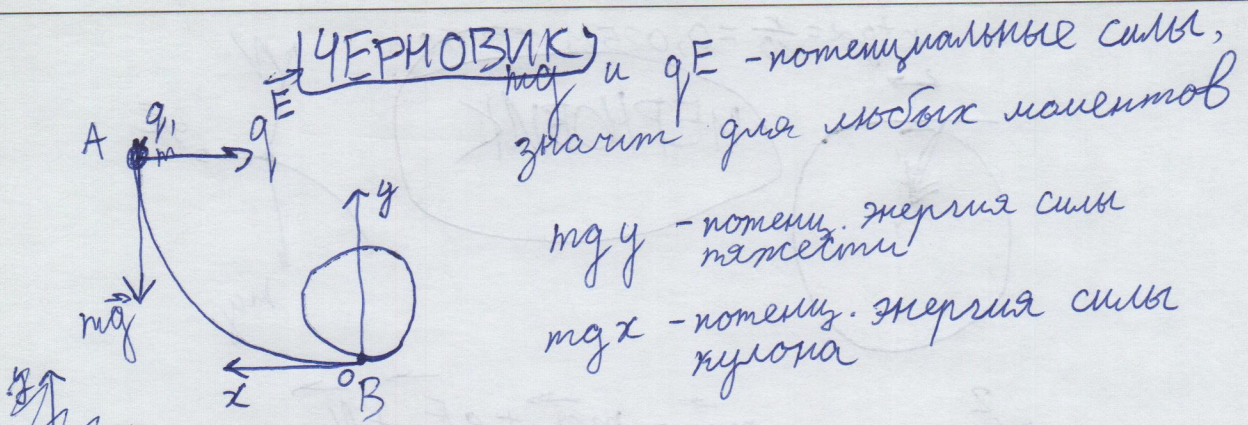 ЧЕРНОВИК
mg и qE - потенциальные силы,
значит для любых моментов
mgy - потенц. энергия силы
тяжести
mgx - потенц. энергия силы
кулона
A
q, m
qE
mg
y
x
O
B